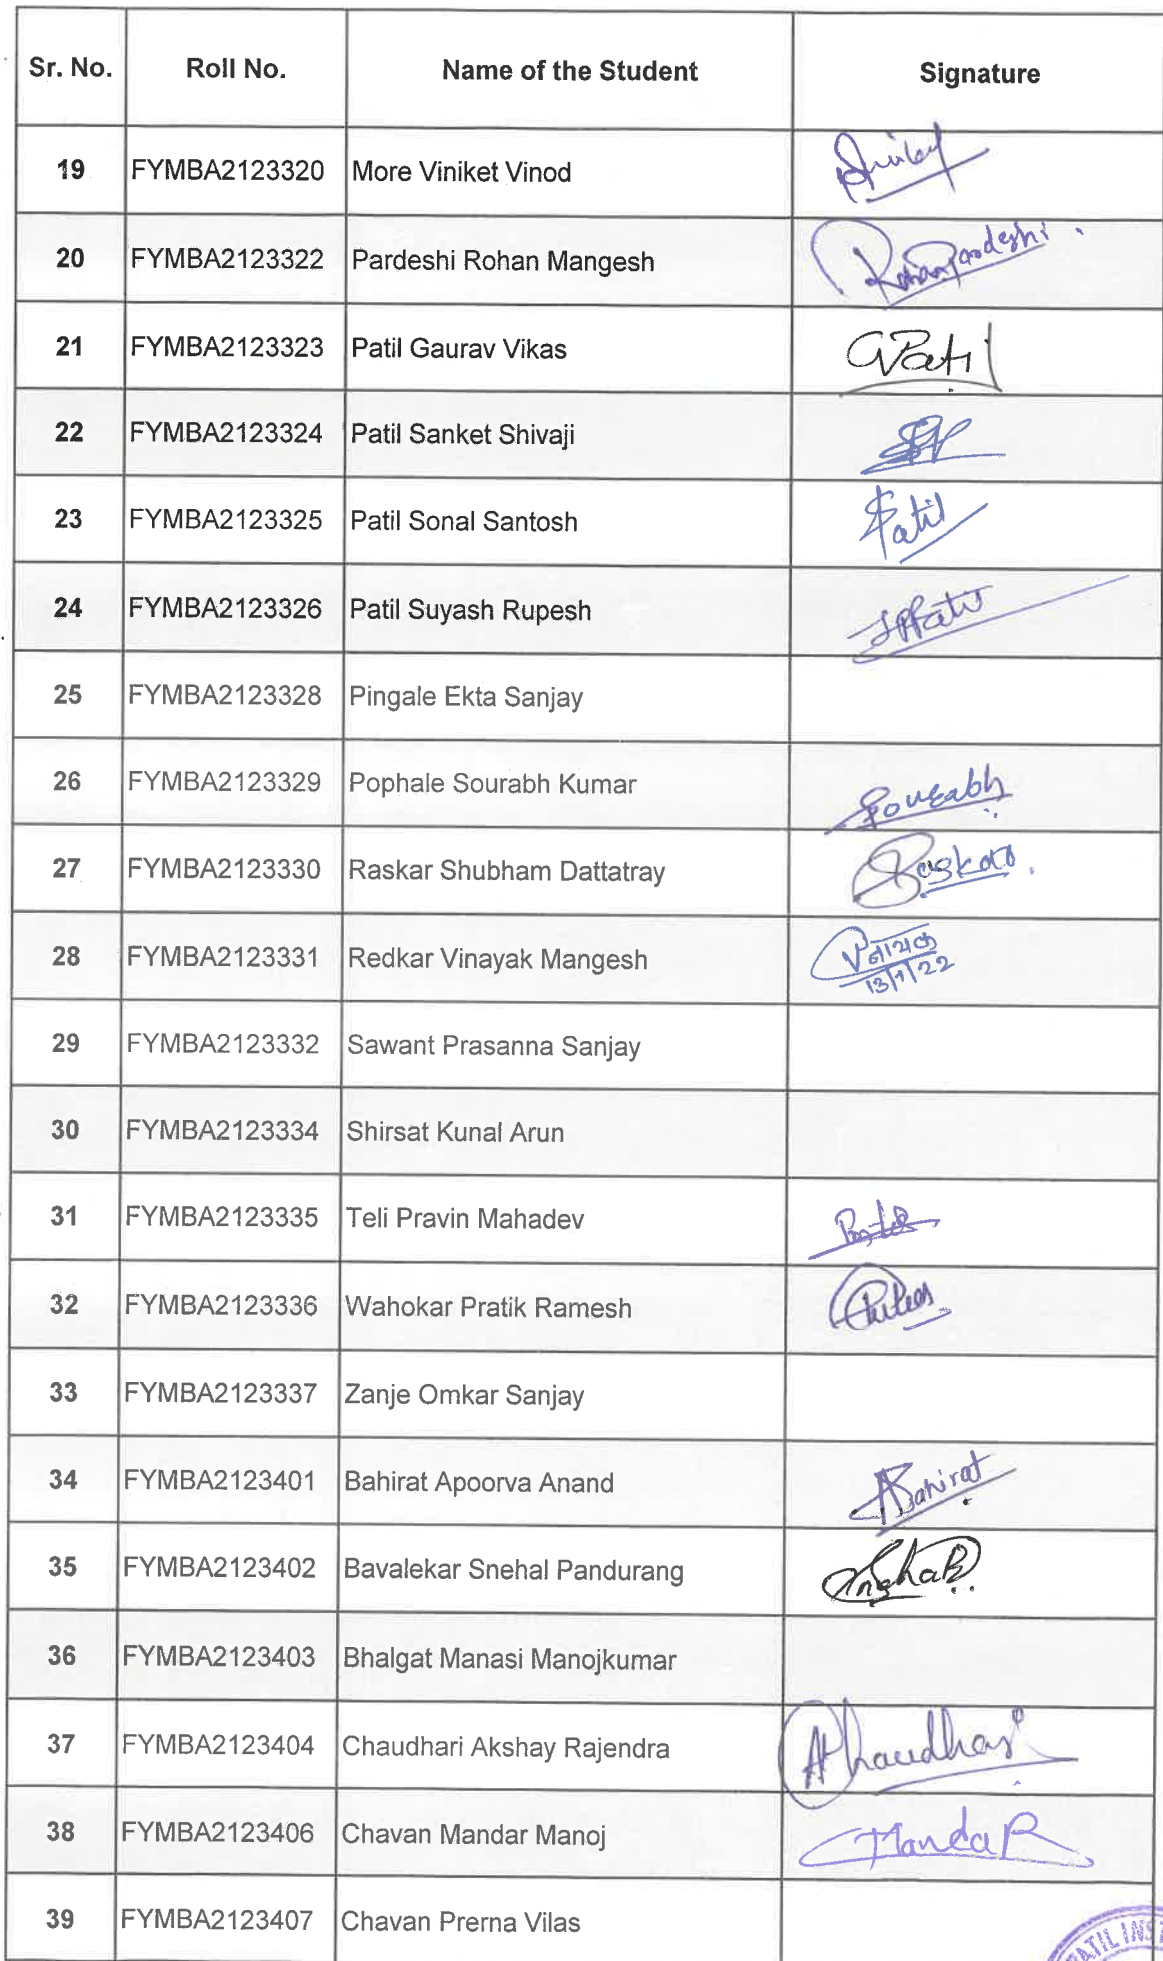 Sr. No. Roll No. Name of the Student Signature
19 FYMBA2123320 More Viniket Vinod
20 FYMBA2123322 Pardeshi Rohan Mangesh Rohan Pardeshi
21 FYMBA2123323 Patil Gaurav Vikas GPatil
22 FYMBA2123324 Patil Sanket Shivaji
23 FYMBA2123325 Patil Sonal Santosh SPatil
24 FYMBA2123326 Patil Suyash Rupesh
25 FYMBA2123328 Pingale Ekta Sanjay
26 FYMBA2123329 Pophale Sourabh Kumar Sourabh
27 FYMBA2123330 Raskar Shubham Dattatray Raskar
28 FYMBA2123331 Redkar Vinayak Mangesh
13/1/22
29 FYMBA2123332 Sawant Prasanna Sanjay
30 FYMBA2123334 Shirsat Kunal Arun
31 FYMBA2123335 Teli Pravin Mahadev
32 FYMBA2123336 Wahokar Pratik Ramesh
33 FYMBA2123337 Zanje Omkar Sanjay
34 FYMBA2123401 Bahirat Apoorva Anand ABahirat
35 FYMBA2123402 Bavalekar Snehal Pandurang
36 FYMBA2123403 Bhalgat Manasi Manojkumar
37 FYMBA2123404 Chaudhari Akshay Rajendra
38 FYMBA2123406 Chavan Mandar Manoj MandaR
39 FYMBA2123407 Chavan Prerna Vilas
PATIL INS